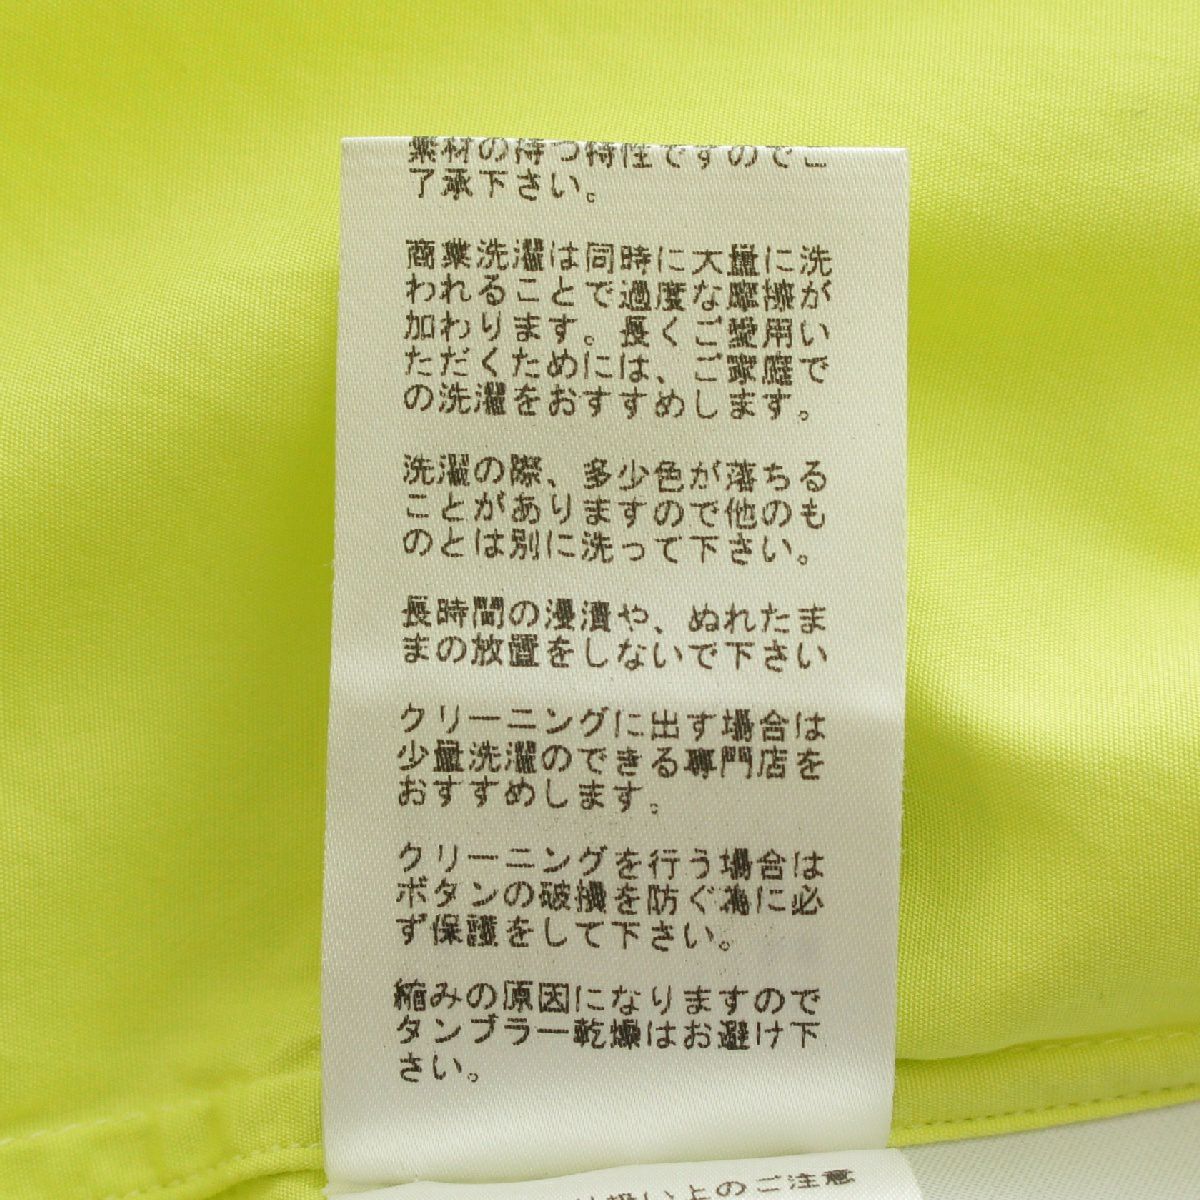 素材の持つ特性ですのでご
了承下さい。
商業洗濯は同時に大量に洗
われることで過度な摩擦が
加わります。長くご愛用い
ただくためには、ご家庭で
の洗濯をおすすめします。
洗濯の際、多少色が落ちる
ことがありますので他のも
のとは別に洗って下さい。
長時間の浸漬や、ぬれたま
まの放置をしないで下さい
クリーニングに出す場合は
少量洗濯のできる専門店を
おすすめします。
クリーニングを行う場合は
ボタンの破損を防ぐ為に必
ず保護をして下さい。
縮みの原因になりますので
タンブラー乾燥はお避け下
さい。
扱い上のご注意